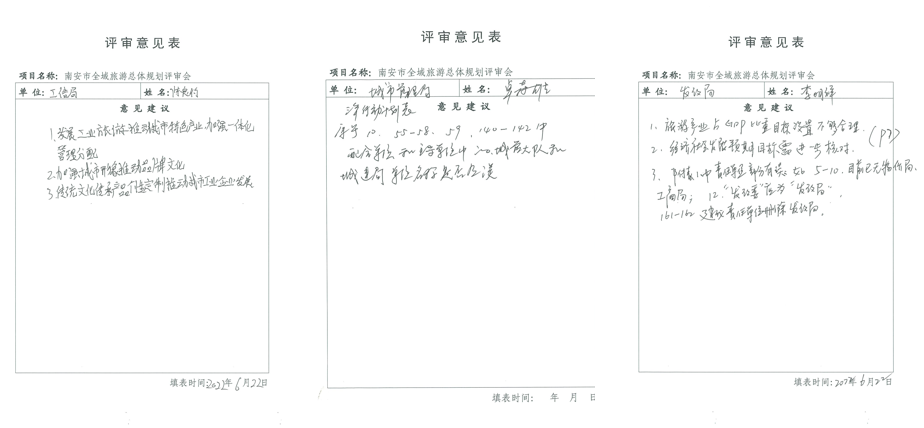 评审意见表
项目名称：南安市全域旅游总体规划评审会
单 位：工信局 姓 名：
意 见 建 议
1.发展工业旅游推动城市特色产业，加强一体化
管理分配
2.加强城市形象推动品牌文化
3.传统文化传承产品创意定制推动城市工业企业发展
填表时间：2022年6月22日
评审意见表
项目名称：南安市全域旅游总体规划评审会
单 位：城市管理局 姓 名：
意 见 建 议
行动计划表
序号10、55-58、59、140-142中
配合单位和主导单位中
城建局单位名称是否有误
填表时间： 年 月 日
评审意见表
项目名称：南安市全域旅游总体规划评审会
单 位：发改局 姓 名：李明辉
意 见 建 议
1、旅游产业占GDP比重目标设置不够合理。
2、经济和社会发展预期目标需进一步核对。(P7)
3、附表1中责任单位部分有误，如5-10，目前已无
工商局；12."发改委"应为"发改局"。
161-162 建议责任单位删除发改局。
填表时间：2022年6月22日